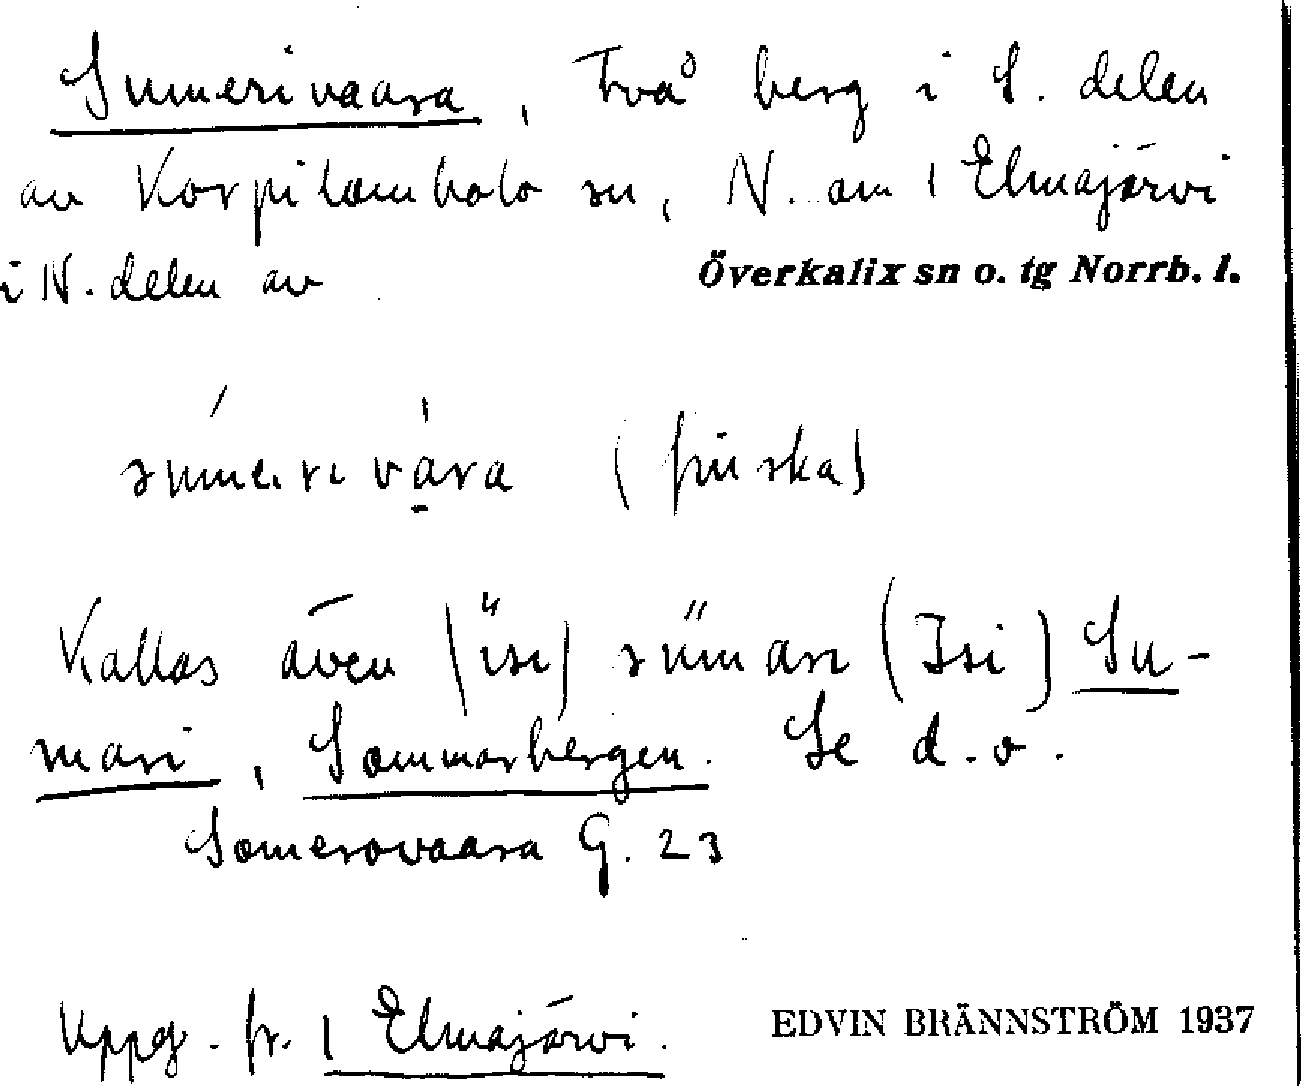 Sumerivaara, Två berg i S. delen
av Korpilombolo sn, N. om 1 Elmajärvi
i N. delen av Överkalix sn o. tg Norrb. l.
(finska)
Kallas även (Isi) Su-
mari, Sommarbergen. Se d.o.
Somerovaara G. 23
Uppg. fr. 1 Elmajärvi.
EDVIN BRÄNNSTRÖM 1937